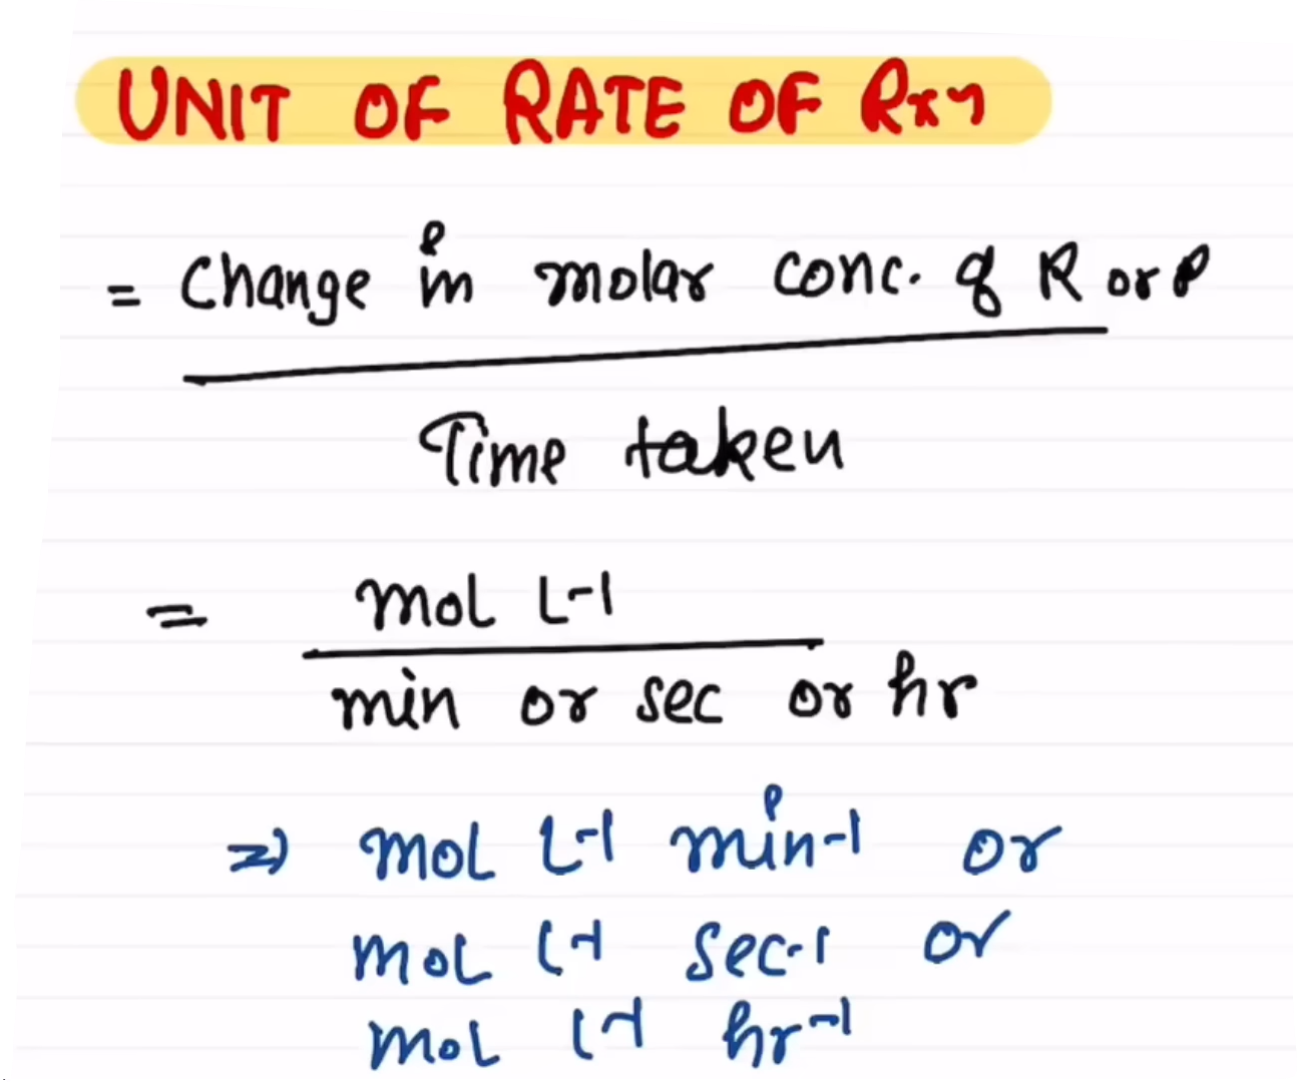 UNIT OF RATE OF Rxn
= Change in molar conc. of R or P
Time taken
= mol L-1
min or sec or hr
=> mol L-1 min-1 or
mol L-1 sec-1 or
mol L-1 hr-1